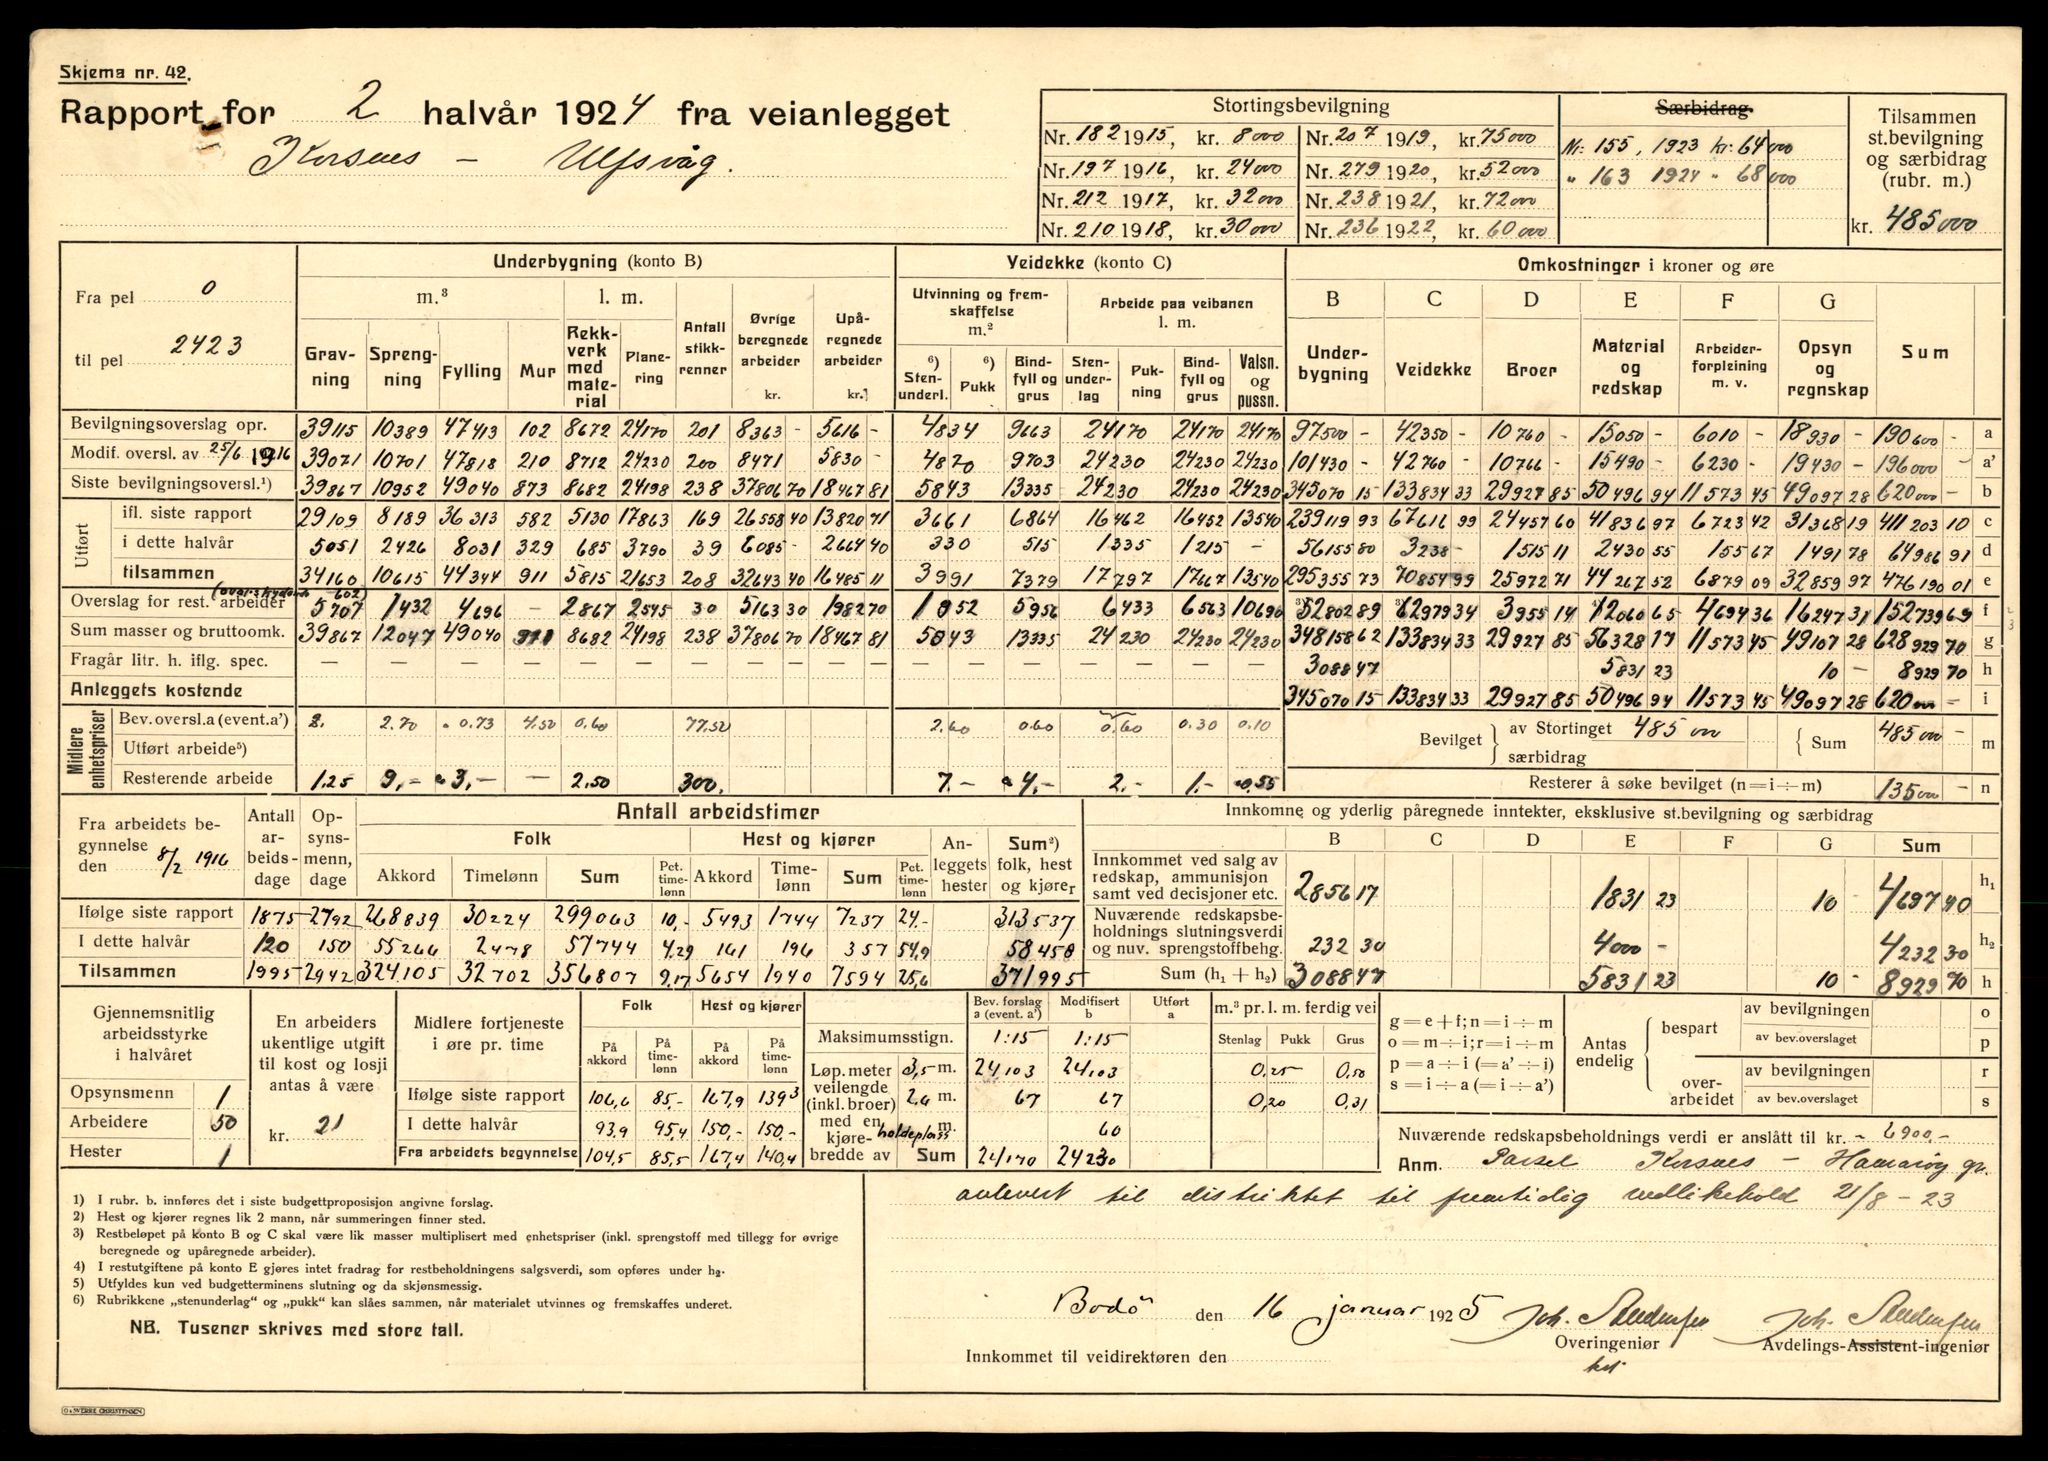 Skjema nr. 42.
Rapport for 2 halvår 1924 fra veianlegget
Korsnes – Ulfsvåg.
Stortingsbevilgning
Særbidrag
Tilsammen st.bevilgning og særbidrag (rubr. m.)
Nr. 182 1915, kr. 8000 Nr. 207 1919, kr. 75000 Nr: 155, 1923 kr. 64000
Nr. 197 1916, kr. 24000 Nr. 279 1920, kr. 52000 " 163 1924 " 68000
Nr. 212 1917, kr. 32000 Nr. 238 1921, kr. 72000
Nr. 210 1918, kr. 30000 Nr. 236 1922, kr. 60000 kr. 485000
Fra pel 0
til pel 2423
Underbygning (konto B) Veidekke (konto C) Omkostninger i kroner og øre
m.³ l. m. Antall stikkrenner Øvrige beregnede arbeider kr. Upåregnede arbeider kr.
Utvinning og fremskaffelse m.² Arbeide paa veibanen l. m.
B C D E F G
Gravning Sprengning Fylling Mur Rekkverk med material Planering
6) Stenunderl. 6) Pukk Bindfyll og grus Stenunderlag Pukning Bindfyll og grus Valsn. og pussn.
Underbygning Veidekke Broer Material og redskap Arbeiderforpleining m. v. Opsyn og regnskap Sum
Bevilgningsoverslag opr. 39115 10389 47413 102 8672 24170 201 8363 - 5616 - 4834 9663 24170 24170 24170 97500 - 42350 - 10760 - 15050 - 6010 - 18930 - 190600 - a
Modif. oversl. av 25/6 1916 39071 10701 47818 210 8712 24230 200 8471 5830 - 4870 9703 24230 24230 24230 101430 - 42760 - 10766 - 15490 - 6230 - 19430 - 196000 - a'
Siste bevilgningsoversl.¹) 39867 10952 49040 873 8682 24198 238 37806 70 18467 81 5843 13335 24230 24230 24230 345070 15 133834 33 29927 85 50496 94 11573 45 49097 28 620000 - b
Utført
ifl. siste rapport 29109 8189 36313 582 5130 17863 169 26558 40 13820 71 3661 6864 16462 16452 13540 239119 93 67616 99 24457 60 41836 97 6723 42 31368 19 411203 10 c
i dette halvår 5051 2426 8031 329 685 3790 39 6085 - 2664 40 330 515 1335 1215 - 56155 80 3238 - 1515 11 2430 55 155 67 1491 78 64986 91 d
tilsammen 34160 10615 44344 911 5815 21653 208 32643 40 16485 11 3991 7379 17797 17667 13540 295355 73 70854 99 25972 71 44267 52 6879 09 32859 97 476190 01 e
Overslag for rest. arbeider 5707 1432 4696 - 2867 2545 30 5163 30 1982 70 1852 5956 6433 6563 10690 52802 89 62979 34 3955 14 12060 65 4694 36 16247 31 152739 69 f
Sum masser og bruttoomk. 39867 12047 49040 911 8682 24198 238 37806 70 18467 81 5843 13335 24230 24230 24230 348158 62 133834 33 29927 85 56328 17 11573 45 49107 28 628929 70 g
Fragår litr. h. iflg. spec. — 3088 47 5831 23 10 - 8929 70 h
Anleggets kostende 345070 15 133834 33 29927 85 50496 94 11573 45 49097 28 620000 - i
Midlere enhetspriser
Bev. oversl. a (event. a') 2. 2.70 0.73 4.50 0.60 77.50 2.60 0.60 0.60 0.30 0.10
Utført arbeide⁵)
Resterende arbeide 1.25 9.- 3.- - 2.50 300. 7.- 4.- 2.- 1.- 0.55
Bevilget av Stortinget 485000 særbidrag Sum 485000 - m
Resterer å søke bevilget (n = i ÷ m) 135000 - n
Fra arbeidets begynnelse den 8/2 1916
Antall arbeidsdage Opsynsmenn, dage
Antall arbeidstimer
Folk Hest og kjører Anleggets hester Sum²) folk, hest og kjører
Akkord Timelønn Sum Pct. timelønn Akkord Timelønn Sum Pct. timelønn
Ifølge siste rapport 1875 2792 268839 30224 299063 10,- 5493 1744 7237 24.- 313537
I dette halvår 120 150 55266 2478 57744 4.29 161 196 357 54,9 58458
Tilsammen 1995 2942 324105 32702 356807 9,17 5654 1940 7594 25,6 371995
Innkomne og yderlig påregnede inntekter, eksklusive st.bevilgning og særbidrag
B C D E F G Sum
Innkommet ved salg av redskap, ammunisjon samt ved decisjoner etc. 2856 17 1831 23 10 - 4697 40 h₁
Nuværende redskapsbeholdnings slutningsverdi og nuv. sprengstoffbehg. 232 30 4000 - 4232 30 h₂
Sum (h₁ + h₂) 3088 47 5831 23 10 - 8929 70 h
Gjennemsnitlig arbeidsstyrke i halvåret
Opsynsmenn 1
Arbeidere 50
Hester 1
En arbeiders ukentlige utgift til kost og losji antas å være
kr. 21
Midlere fortjeneste i øre pr. time
Folk Hest og kjører
På akkord På timelønn På akkord På timelønn
Ifølge siste rapport 106,6 85,- 167,9 139,3
I dette halvår 93,9 95,4 150,- 150,-
Fra arbeidets begynnelse 104,5 85,5 167,4 140,4
Bev. forslag a (event. a') Modifisert b Utført a
Maksimumsstign. 1:15 1:15
Løp. meter veilengde (inkl. broer) med en kjørebredde av
3,5 m. 24103 24103
2.6 m. 67 67
holdeplass m. 60
Sum 24170 24230
m.³ pr. l. m. ferdig vei
Stenlag Pukk Grus
0,25 0,50
0,20 0,31
g = e + f; n = i ÷ m
o = m ÷ i; r = i ÷ m
p = a ÷ i (= a' ÷ i)
s = i ÷ a (= i ÷ a')
Antas endelig bespart overarbeidet
av bevilgningen o
av bev.overslaget p
av bevilgningen r
av bev.overslaget s
Nuværende redskapsbeholdnings verdi er anslått til kr. - 6900,-
Anm. Parsel Korsnes – Hamarøy gr.
avlevert til distriktet til fremtidig vedlikehold 21/8 - 23
1) I rubr. b. innføres det i siste budgettproposisjon angivne forslag.
2) Hest og kjører regnes lik 2 mann, når summeringen finner sted.
3) Restbeløpet på konto B og C skal være lik masser multiplisert med enhetspriser (inkl. sprengstoff med tillegg for øvrige beregnede og upåregnede arbeider).
4) I restutgiftene på konto E gjøres intet fradrag for restbeholdningens salgsverdi, som opføres under h₂.
5) Utfyldes kun ved budgetterminens slutning og da skjønsmessig.
6) Rubrikkene „stenunderlag" og „pukk" kan slåes sammen, når materialet utvinnes og fremskaffes underet.
NB. Tusener skrives med store tall.
Bodö den 16 januar 1925
Overingeniør
Avdelings-Assistent-ingeniør
Innkommet til veidirektøren den
O. SVERRE CHRISTENSEN